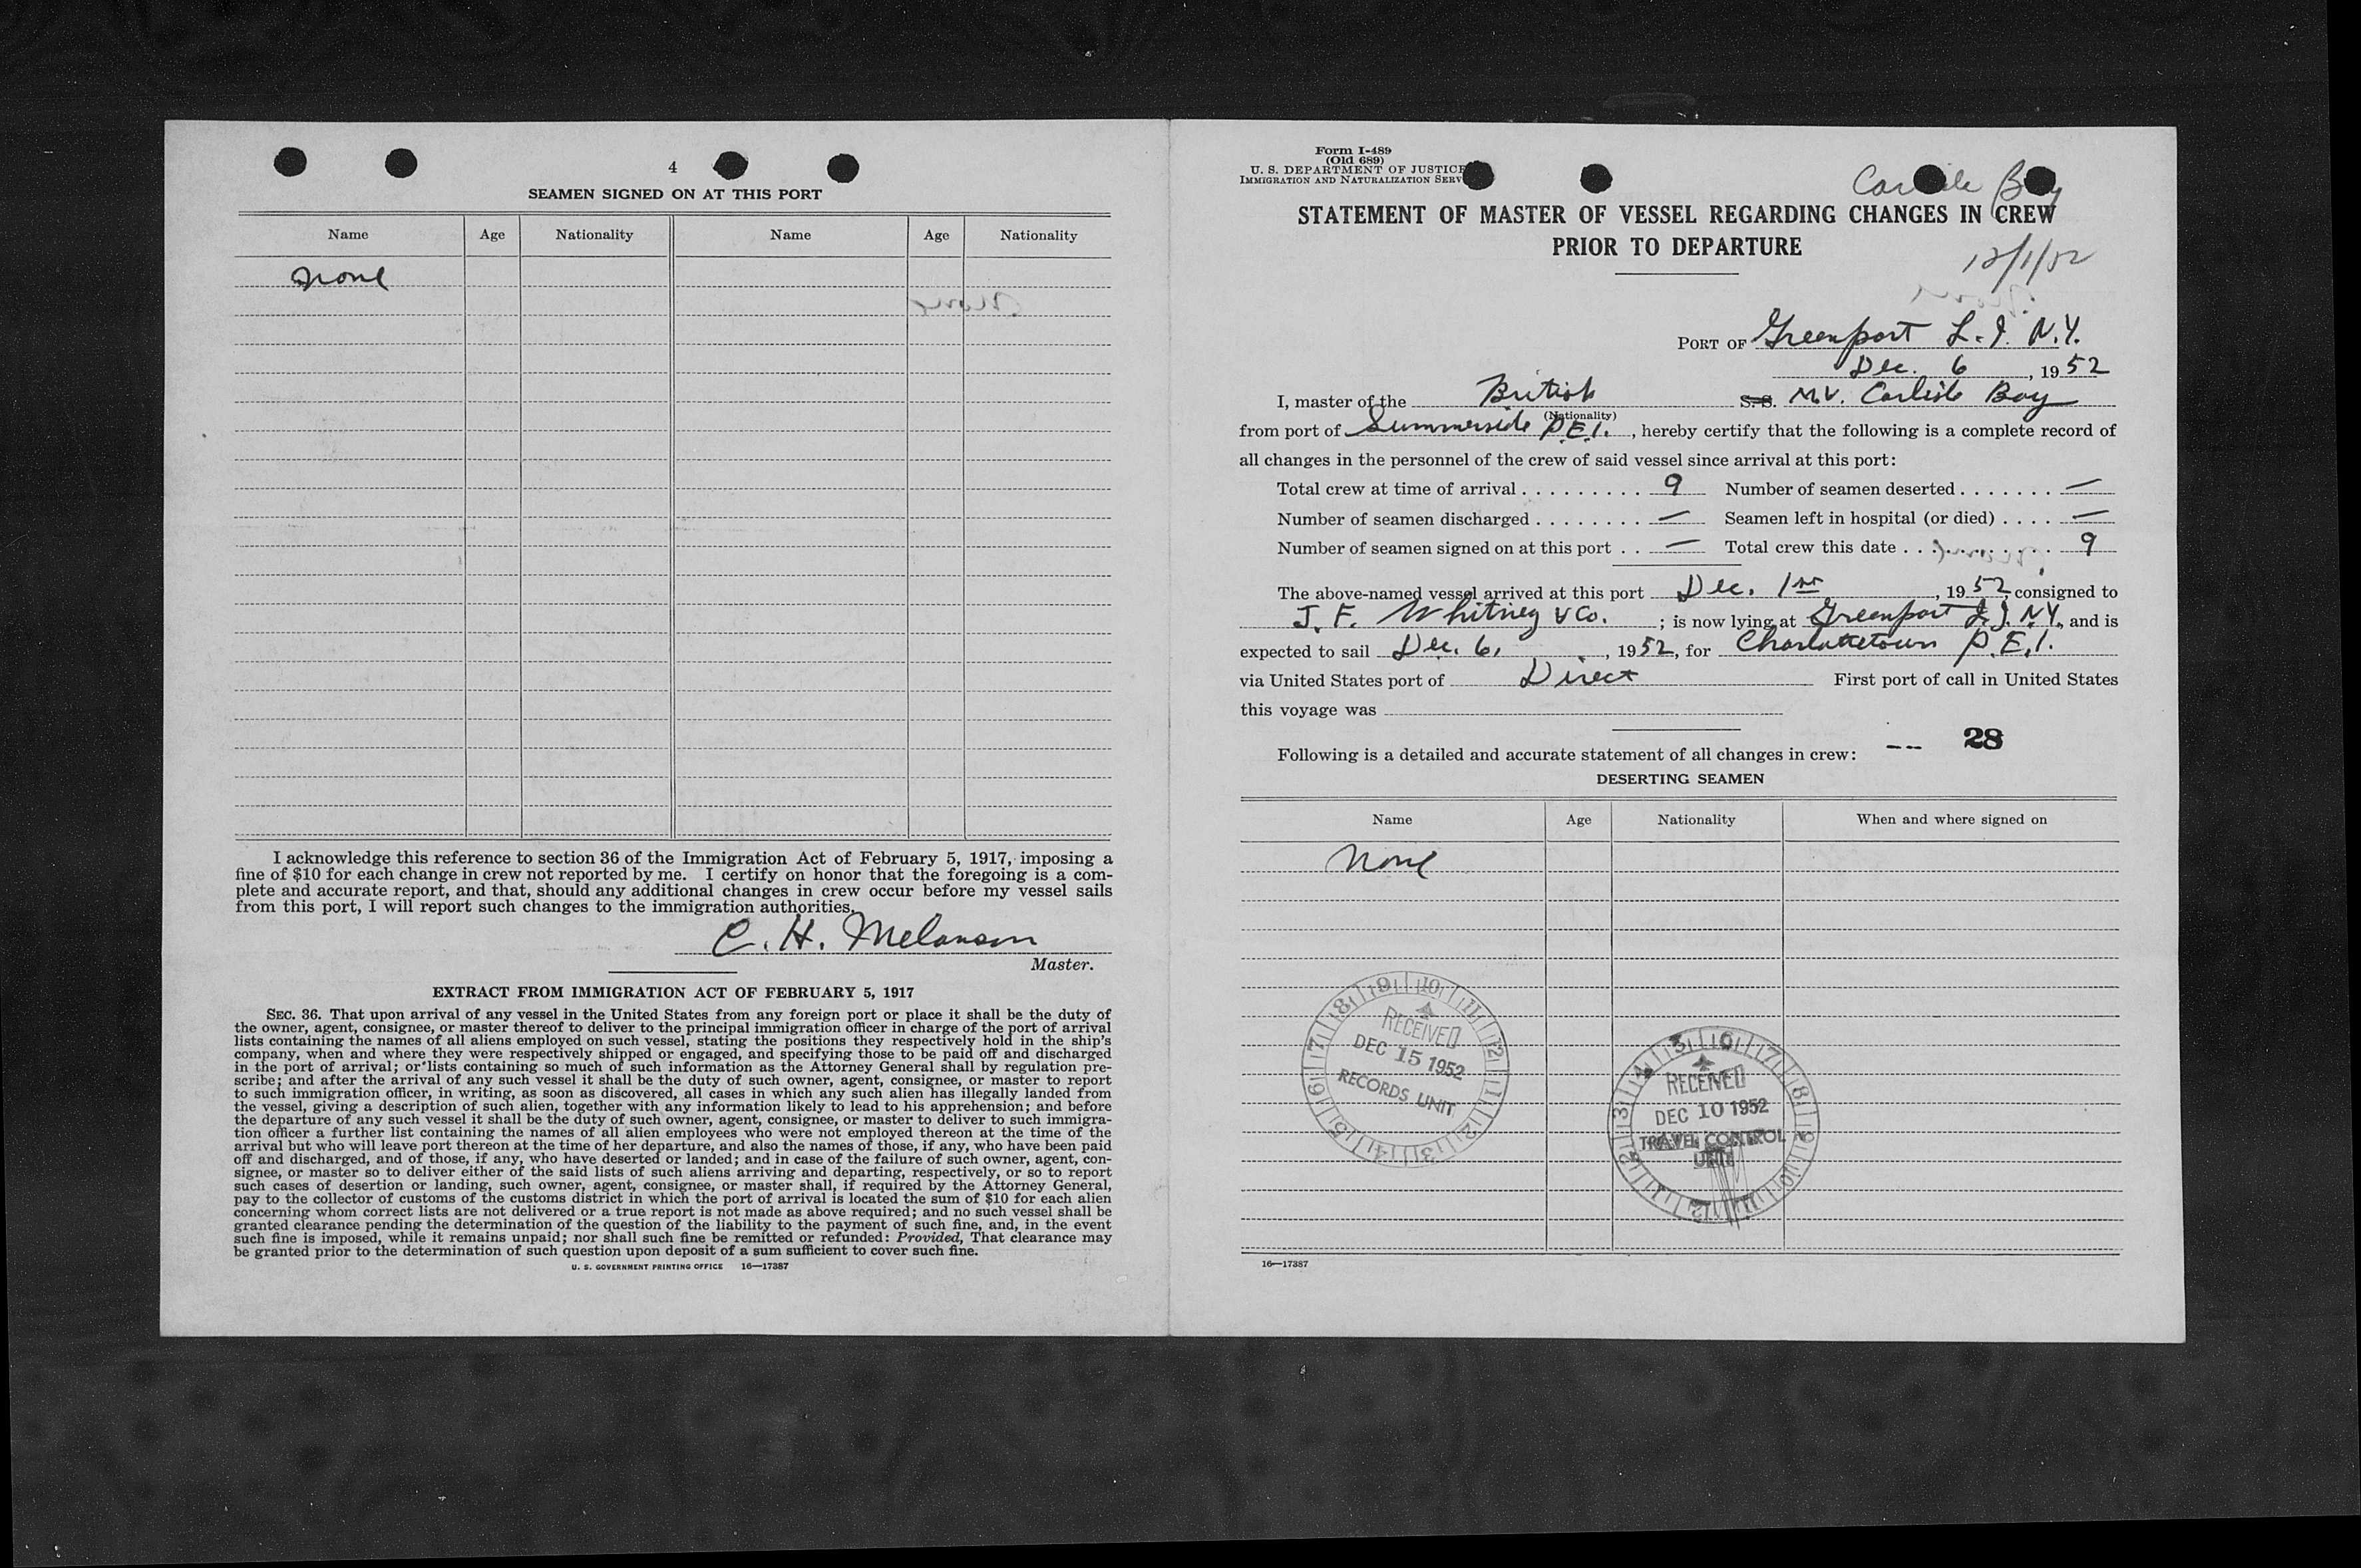 4
SEAMEN SIGNED ON AT THIS PORT
Name Age Nationality Name Age Nationality
None
I acknowledge this reference to section 36 of the Immigration Act of February 5, 1917, imposing a
fine of $10 for each change in crew not reported by me. I certify on honor that the foregoing is a com-
plete and accurate report, and that, should any additional changes in crew occur before my vessel sails
from this port, I will report such changes to the immigration authorities.
C. H. Melanson
Master.
EXTRACT FROM IMMIGRATION ACT OF FEBRUARY 5, 1917
SEC. 36. That upon arrival of any vessel in the United States from any foreign port or place it shall be the duty of
the owner, agent, consignee, or master thereof to deliver to the principal immigration officer in charge of the port of arrival
lists containing the names of all aliens employed on such vessel, stating the positions they respectively hold in the ship's
company, when and where they were respectively shipped or engaged, and specifying those to be paid off and discharged
in the port of arrival; or lists containing so much of such information as the Attorney General shall by regulation pre-
scribe; and after the arrival of any such vessel it shall be the duty of such owner, agent, consignee, or master to report
to such immigration officer, in writing, as soon as discovered, all cases in which any such alien has illegally landed from
the vessel, giving a description of such alien, together with any information likely to lead to his apprehension; and before
the departure of any such vessel it shall be the duty of such owner, agent, consignee, or master to deliver to such immigra-
tion officer a further list containing the names of all alien employees who were not employed thereon at the time of the
arrival but who will leave port thereon at the time of her departure, and also the names of those, if any, who have been paid
off and discharged, and of those, if any, who have deserted or landed; and in case of the failure of such owner, agent, con-
signee, or master so to deliver either of the said lists of such aliens arriving and departing, respectively, or so to report
such cases of desertion or landing, such owner, agent, consignee, or master shall, if required by the Attorney General,
pay to the collector of customs of the customs district in which the port of arrival is located the sum of $10 for each alien
concerning whom correct lists are not delivered or a true report is not made as above required; and no such vessel shall be
granted clearance pending the determination of the question of the liability to the payment of such fine, and, in the event
such fine is imposed, while it remains unpaid; nor shall such fine be remitted or refunded: Provided, That clearance may
be granted prior to the determination of such question upon deposit of a sum sufficient to cover such fine.
U. S. GOVERNMENT PRINTING OFFICE 16—17387
Form I-489
(Old 689)
U. S. DEPARTMENT OF JUSTICE
IMMIGRATION AND NATURALIZATION SERV
Carlisle Bay
STATEMENT OF MASTER OF VESSEL REGARDING CHANGES IN CREW
PRIOR TO DEPARTURE
12/1/52
PORT OF Greenport L.I. N.Y.
Dec. 6, 1952
I, master of the British S.S. M.V. Carlisle Bay
(Nationality)
from port of Summerside P.E.I., hereby certify that the following is a complete record of
all changes in the personnel of the crew of said vessel since arrival at this port:
Total crew at time of arrival . . . . . . . . . 9 Number of seamen deserted . . . . . . . —
Number of seamen discharged . . . . . . . . — Seamen left in hospital (or died) . . . . —
Number of seamen signed on at this port . . — Total crew this date . . . . . . . . . . 9
The above-named vessel arrived at this port Dec. 1st, 1952, consigned to
J. F. Whitney & Co. ; is now lying at Greenport L.I. N.Y., and is
expected to sail Dec. 6, , 1952, for Charlottetown P.E.I.
via United States port of Direct First port of call in United States
this voyage was
-- 28
Following is a detailed and accurate statement of all changes in crew:
DESERTING SEAMEN
Name Age Nationality When and where signed on
None
RECEIVED
DEC 15 1952
RECORDS UNIT
RECEIVED
DEC 10 1952
TRAVEL CONTROL
UNIT
16—17387